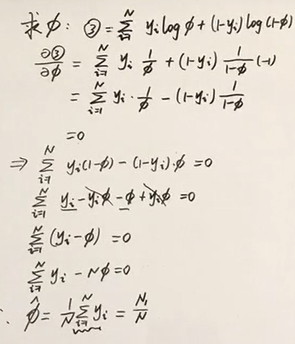 求φ: ③ = ∑_{i=1}^{N} y_i log φ + (1-y_i) log (1-φ)
∂③/∂φ = ∑_{i=1}^{N} y_i 1/φ + (1-y_i) 1/(1-φ) (-1)
= ∑_{i=1}^{N} y_i · 1/φ - (1-y_i) 1/(1-φ)
=0
⇒ ∑_{i=1}^{N} y_i(1-φ) - (1-y_i)·φ = 0
∑_{i=1}^{N} y_i - y_iφ - φ + y_iφ = 0
∑_{i=1}^{N} (y_i - φ) = 0
∑_{i=1}^{N} y_i - Nφ = 0
∴ φ̂ = 1/N ∑_{i=1}^{N} y_i = N_1/N